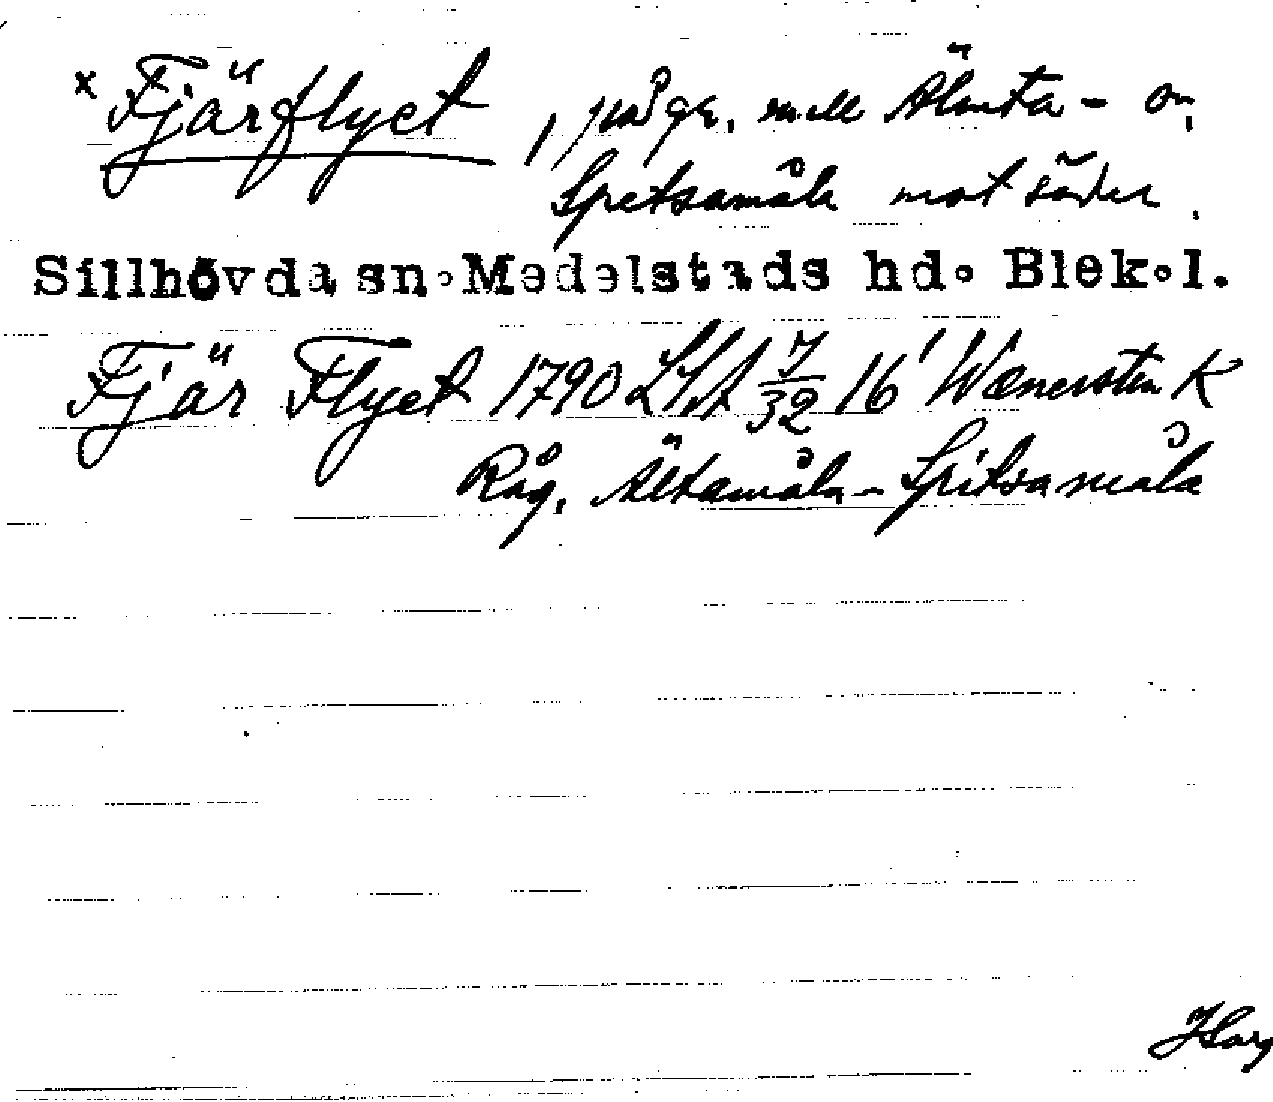 x Fjärflyet, på gr. mell Älmta - o,
Spetsamåla mot söder.
Sillhövda sn. Medelstads hd. Blek. l.
Fjär Flyet 1790 LSA 7/32 16' Wænersten K
Råg. Ältamåla - Spitsamåla